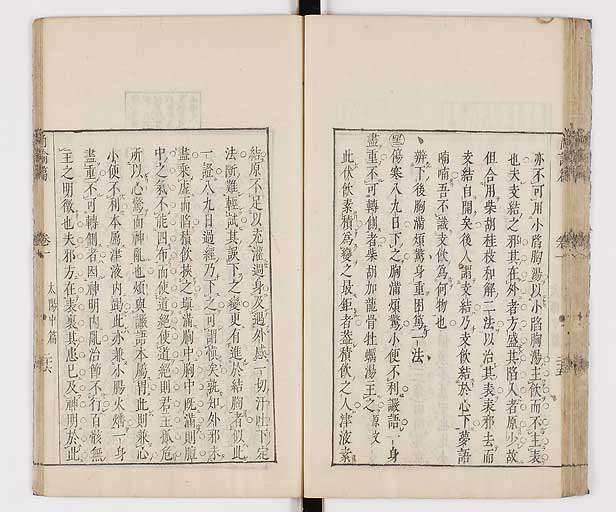 亦不可用小陷胸湯以小陷胸湯主飲而不主表
也夫支結之邪其在外者方盛其陷入者原少故
但合用柴胡桂枝和解二法以治其表表邪去而
支結自開矣後人謂支結乃支飲結於心下夢語
喃喃吾不識支飲為何物也
辨下後胸滿煩驚身重困篤一法
傷寒八九日下之胸滿煩驚小便不利譫語一身
盡重不可轉側者柴胡加龍骨牡蠣湯主之原文
此伏飲素積為變之最鉅者蓋積飲之人津液素
結原不足以充灌週身及遇外感一切汗吐下定
法斷難輕試其誤下之變更有進於結胸者似此
一證八九日過經乃下之可謂慎矣孰知外邪未
盡乘虛而陷積飲挾之填滿胸中胸中既滿則膻
中之氣不能四布而使道絕使道絕則君主孤危
所以心驚而神亂也煩與譫語本屬胃此則兼心
小便不利本屬津液內竭此亦兼小腸火燔一身
盡重不可轉側者因神明內亂治節不行百骸無
主之明徵也夫邪方在表裏其患已及神明於此
尚論篇
卷一
太陽中篇